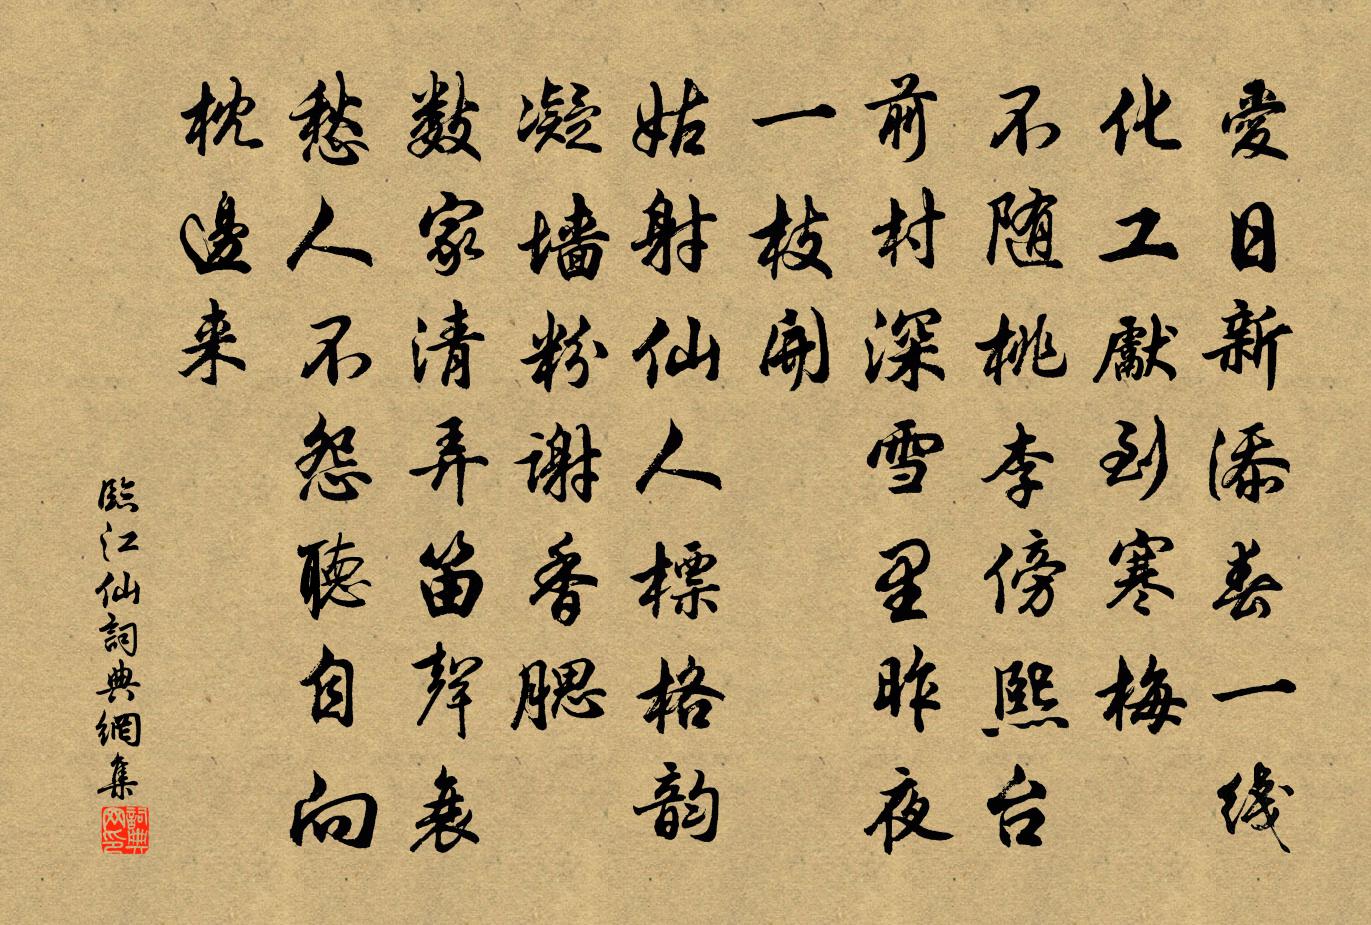 愛日新添春一线
化工獻到寒梅
不随桃李傍熙台
前村深雪里昨夜
一枝開
姑射仙人標格韵
凝墙粉谢香腮
数家清弄笛聲哀
愁人不怨聽自向
枕邊来
臨江仙詞典網集
詞典网印